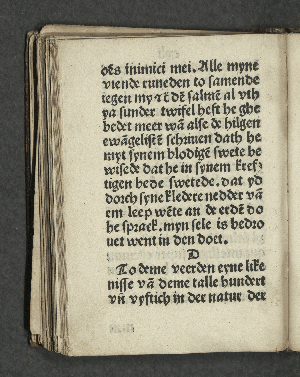 oēs inimici mei. Alle myne
viende runeden to samende
iegen my ⁊ c̄ dē salmē al vth
ya sunder twifel heft he ghe
bedet meer wā alse de hilgen
ewāgelistē schriuen dath he
myt synem blodigē swete be
wisede dat he in synem kref⸗
tigen bede swetede. dat yd
dorch syne kledere nedder vā
em leep wēte an de erdē do
he sprack. myn sele is bedro
uet went in den doet.
D
To deme veerden eyne like
nisse vā deme talle hundert
vn̄ vyftich in der natur der